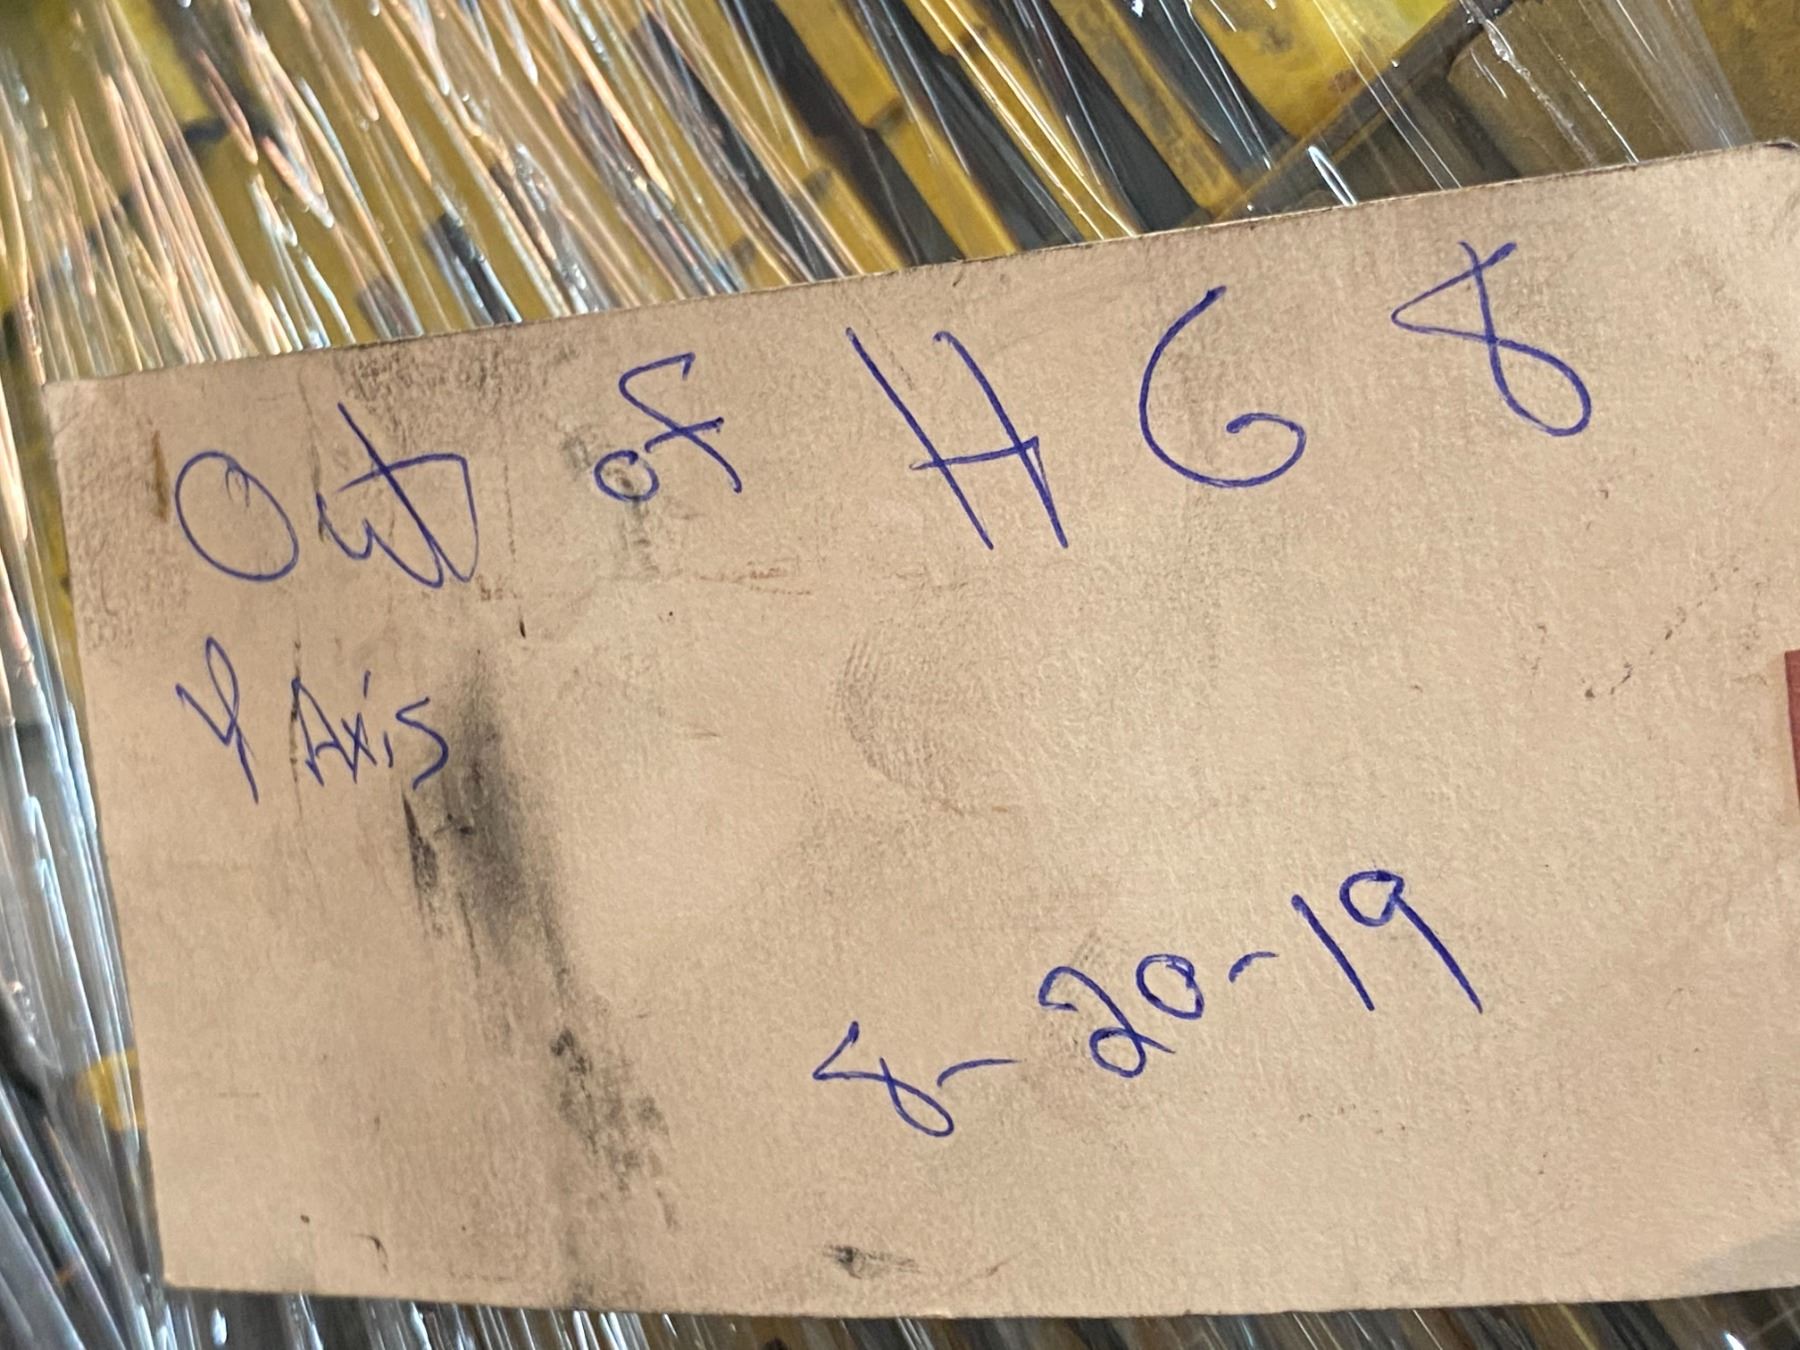 Out of H G 8
Y Axis
8-20-19